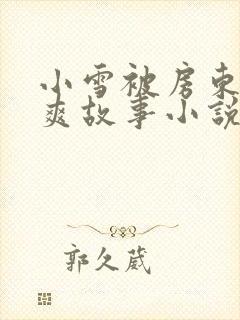 小雪被房东
爽故事小説
郭久葳